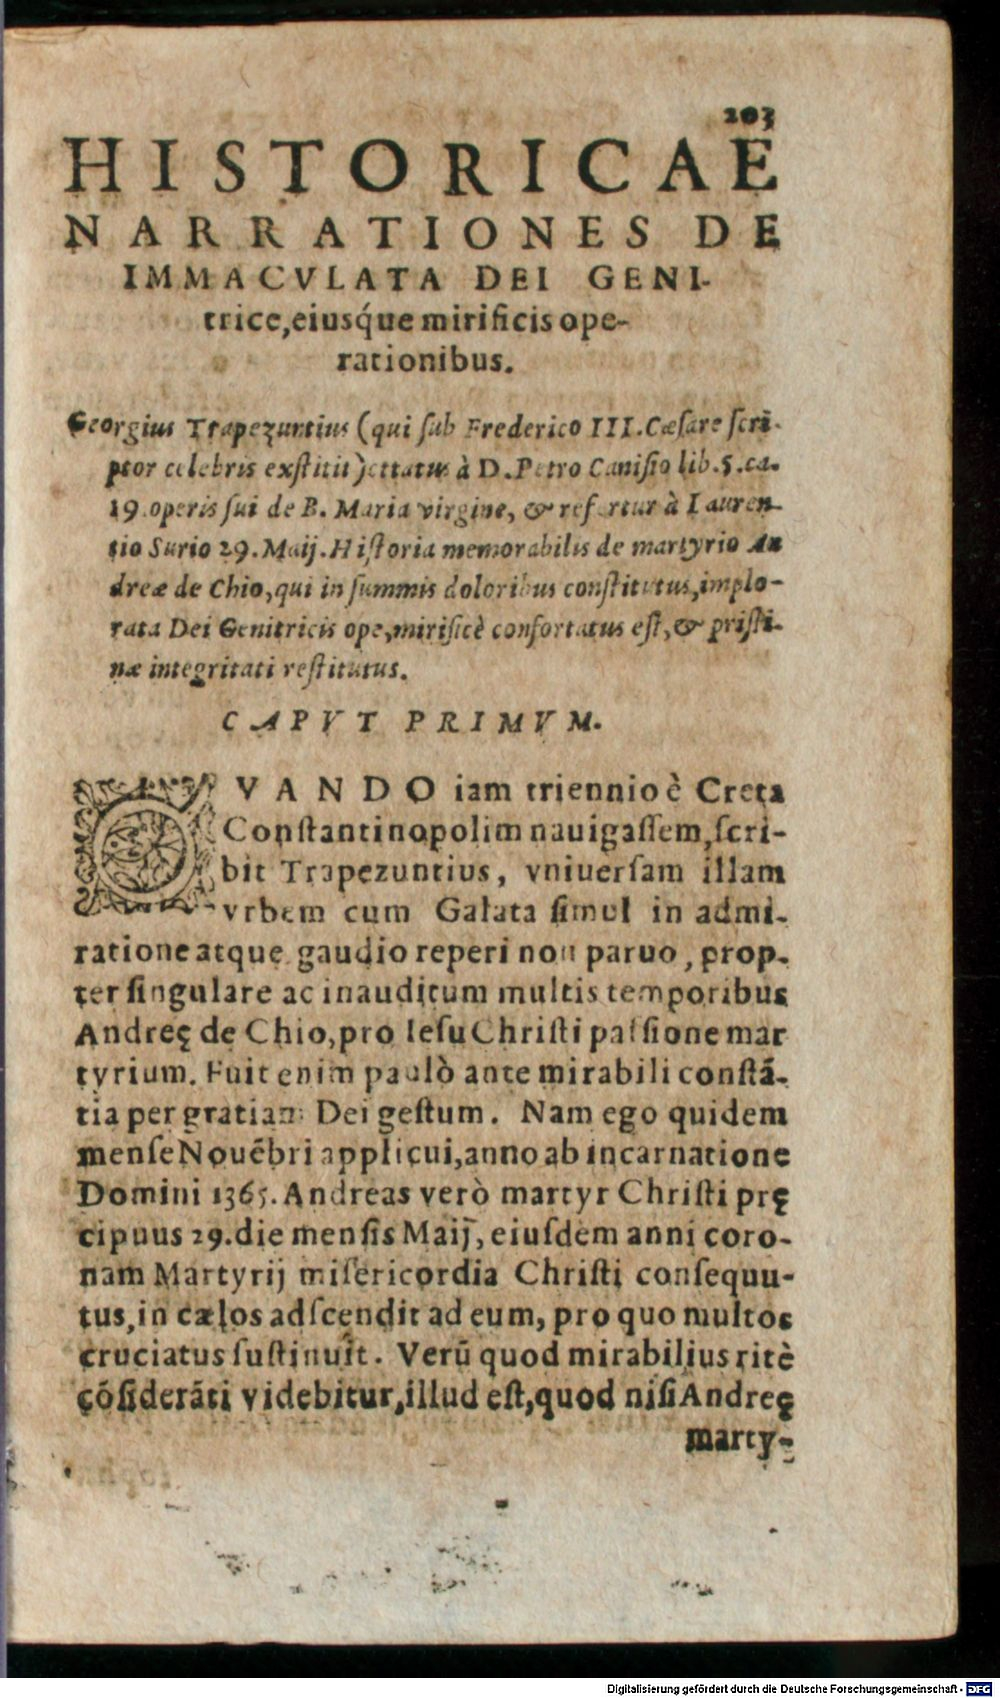 203
HISTORICAE
NARRATIONES DE
IMMACVLATA DEI GENI-
trice, eiusq́ue mirificis ope-
rationibus.
Georgius Trapezuntius (qui ſub Frederico III. Cæſare ſcri-
ptor celebris exſtitit) cttatus à D. Petro Caniſio lib. 5. ca.
19. operis ſui de B. Maria virgine, & refertur à Lauren-
tio Surio 29. Maij. Hiſtoria memorabilis de martyrio An
dreæ de Chio, qui in ſummis doloribus conſtitutus, implo-
rata Dei Genitricis ope, mirificè confortatus eſt, & priſti-
næ integritati reſtitutus.
CAPVT PRIMVM.
QVANDO iam triennio è Creta
Conſtantinopolim nauigaſſem, ſcri-
bit Trapezuntius, vniuerſam illam
vrbem cum Galata ſimul in admi-
ratione atque gaudio reperi non paruo, prop-
ter ſingulare ac inauditum multis temporibus
Andreę de Chio, pro Ieſu Chriſti paſſione mar
tyrium. Fuit enim paulò ante mirabili conſtã-
tia per gratiam Dei geſtum. Nam ego quidem
menſe Nouẽbri applicui, anno ab incarnatione
Domini 1365. Andreas verò martyr Chriſti prę
cipuus 29. die menſis Maij, eiuſdem anni coro-
nam Martyrij miſericordia Chriſti conſequu-
tus, in cælos adſcendit ad eum, pro quo multos
cruciatus ſuſtinuit. Verũ quod mirabilius ritè
cõſiderãti videbitur, illud eſt, quod niſi Andreę
marty-
Digitalisierung gefördert durch die Deutsche Forschungsgemeinschaft - DFG